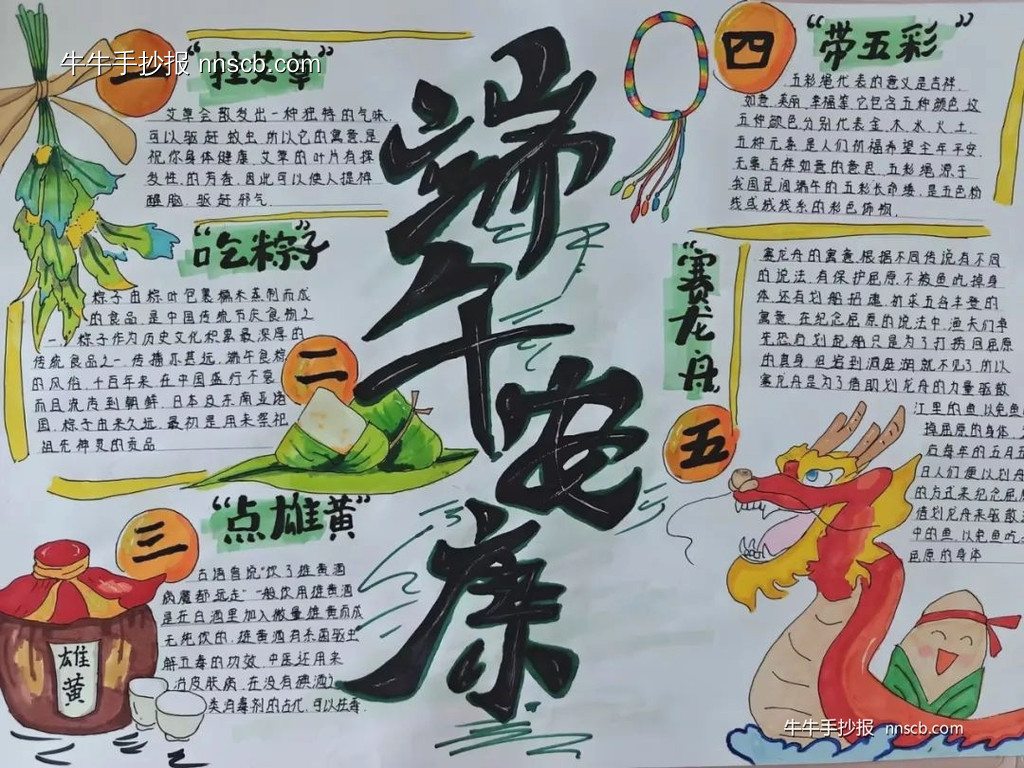 牛牛手抄报 nnscb.com
一
“挂艾草”
艾草会散发出一种独特的气味
可以驱赶蚊虫,所以它的寓意是
祝你身体健康,艾草的叶片有挥
发性的芳香,因此可以使人提神
醒脑,驱赶邪气.
“吃粽”子
二
粽子由粽叶包裹糯米蒸制而成
的食品,是中国传统节庆食物之
一,粽子作为历史文化积累最深厚的
传统食品之一,传播亦甚远,端午食粽
的风俗,千百年来,在中国盛行不衰
而且流传到朝鲜,日本及东南亚诸
国,粽子由来久远,最初是用来祭祀
祖先神灵的贡品
三
“点雄黄”
古语曾说“饮了雄黄酒
病魔都远走”一般饮用雄黄酒
是在白酒里加入微量雄黄而成
无纯饮的,雄黄酒有杀菌驱虫
解五毒的功效,中医还用来
治皮肤病,在没有碘酒之
类消毒剂的古代,可以
雄
黄
端
午
安
康
四
“带五彩”
五彩绳代表的意义是吉祥
如意,美丽,幸福等,它包含五种颜色,这
五种颜色分别代表金,木,水,火,土,
五种元素,是人们祈福希望全年平安,
无素,吉祥如意的意思,五彩绳源于
我国民间端午的五彩长命缕,是五色
线或绒线系的彩色饰物.
“赛龙舟”
五
赛龙舟的寓意,根据不同传说有不同
的说法,有保护屈原不被鱼吃掉身
体,还有划船招魂,祈求五谷丰登的
寓意,在纪念屈原的说法中,渔夫们率
先恐后划起船只是为了打捞回屈原
的真身,但追到洞庭湖就不见了,所以
赛龙舟是为了借助划龙舟的力量驱散
江里的鱼,以免鱼
掉屈原的身体,
后每年的五月五
日人们便以划舟
的方式来纪念屈
借划龙舟来驱散
中的鱼,以免鱼吃
屈原的身体
牛牛手抄报 nnscb.com